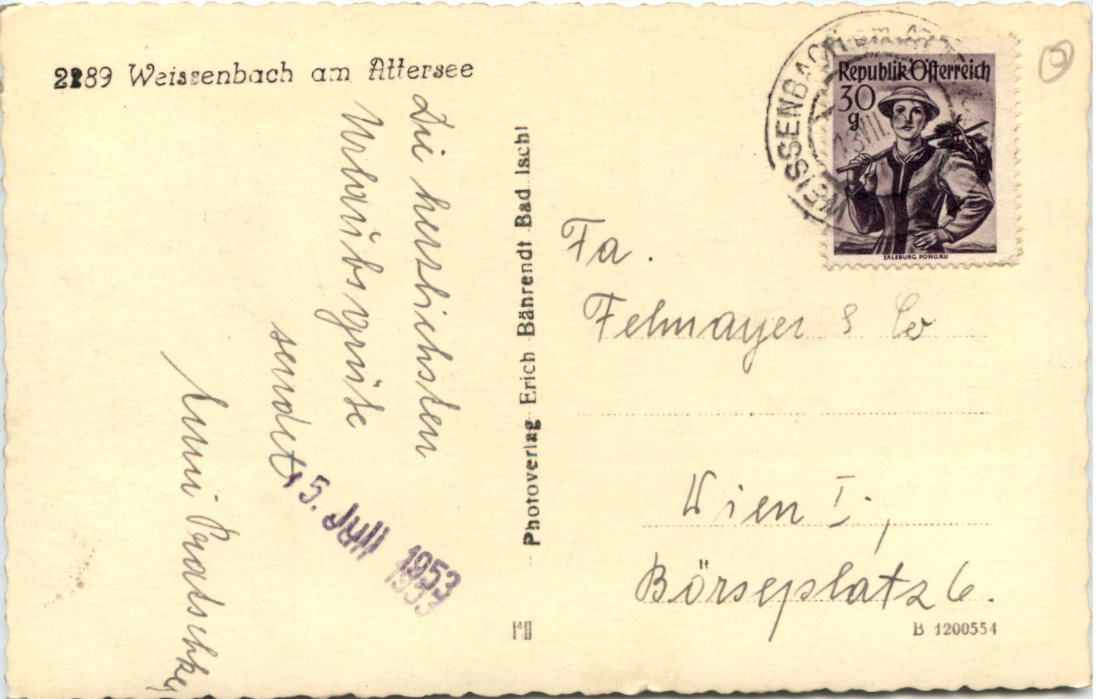 2289 Weissenbach am Attersee
Die herzlichsten
Urlaubsgrüße
sendet
15. Juli 1953
Photoverlag Erich Bährendt Bad Ischl
WEISSENBACH am
Republik Österreich
30
g
SALZBURG PONGAU
Fa.
Felmayer & Co
Wien I.,
Börseplatz 6.
B 1200554